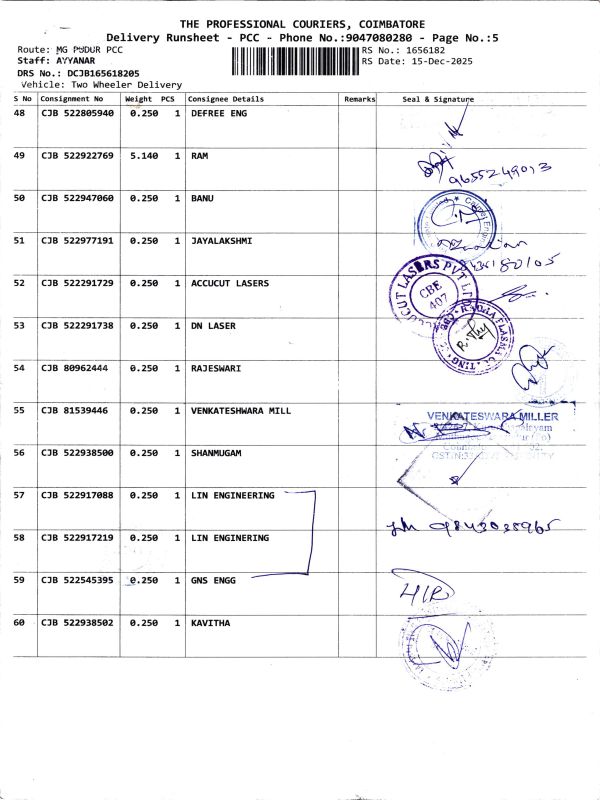 THE PROFESSIONAL COURIERS, COIMBATORE
Delivery Runsheet - PCC - Phone No.:9047080280 - Page No.:5
Route: MG PUDUR PCC RS No.: 1656182
Staff: AYYANAR RS Date: 15-Dec-2025
DRS No.: DCJB165618205
Vehicle: Two Wheeler Delivery
S No Consignment No Weight PCS Consignee Details Remarks Seal & Signature
48 CJB 522805940 0.250 1 DEFREE ENG
49 CJB 522922769 5.140 1 RAM
9655249013
50 CJB 522947060 0.250 1 BANU
51 CJB 522977191 0.250 1 JAYALAKSHMI
52 CJB 522291729 0.250 1 ACCUCUT LASERS
CBE
407
53 CJB 522291738 0.250 1 DN LASER
54 CJB 80962444 0.250 1 RAJESWARI
55 CJB 81539446 0.250 1 VENKATESHWARA MILL
VENKATESWARA MILLER
56 CJB 522938500 0.250 1 SHANMUGAM
57 CJB 522917088 0.250 1 LIN ENGINEERING
58 CJB 522917219 0.250 1 LIN ENGINERING
59 CJB 522545395 0.250 1 GNS ENGG
60 CJB 522938502 0.250 1 KAVITHA